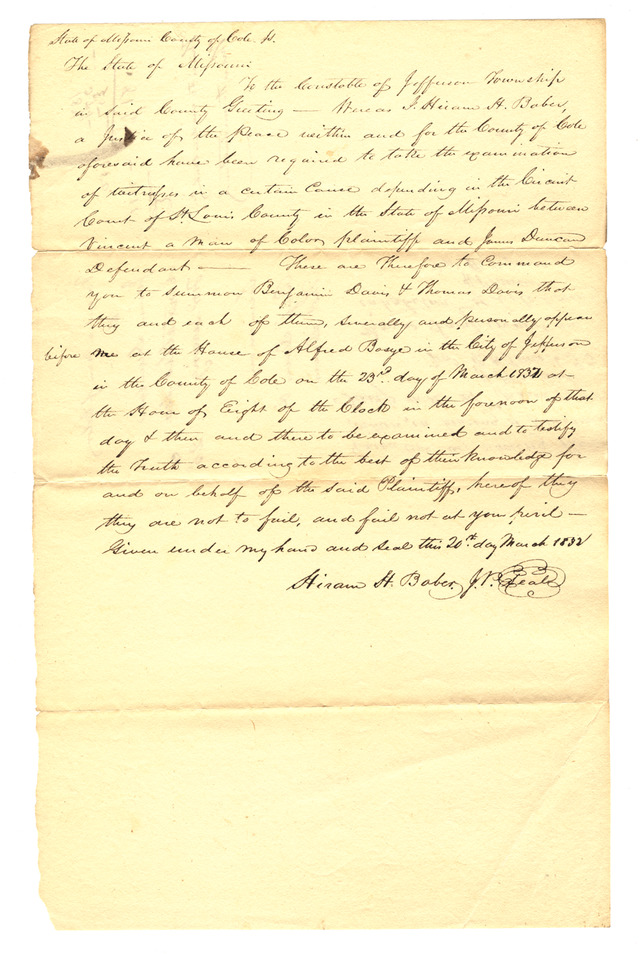 State of Missouri County of Cole Ss.
The State of Missouri
To the Constable of Jefferson Township
in said County Greeting — Wereas I. Hiram H. Baber,
a Justice of the peace within and for the County of Cole
aforesaid have been required to take the examination
of witnesses in a certain Cause depending in the Circuit
Court of St Louis County in the State of Missouri between
Vincent a Man of Color, plaintiff and James Duncan
Defendant — These are Therefore to Command
you to summon Benjamin Davis & Thomas Davis that
they and each of them, severally and personally appear
before me at the House of Alfred Basye in the City of Jefferson
in the County of Cole on the 23d. day of March 1832 at
the Hour of Eight of the Clock in the forenoon of that
day & then and there to be examined and to testify
the Truth according to the best of their knowledge for
and on behalf of the said Plaintiff, hereof they
they are not to fail, and fail not at you peril —
Given under my hand and seal this 20th. day March 1832
Hiram H. Baber. J.P. Seal